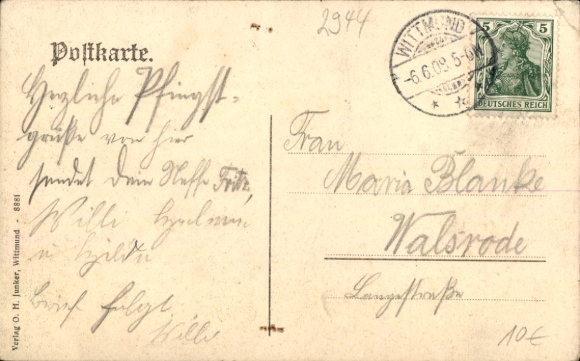 2944
Postkarte.
WITTMUND
-6.6.09.5-6N.
5 5
DEUTSCHES REICH
Herzliche Pfingst-
grüße von hier
sendet dein Neffe Fritz,
Willi
u Hilda
Brief folgt
Willi
Frau
Maria Blanke
Walsrode
Langestraße
10€
Verlag O. H. Junker, Wittmund - 8881